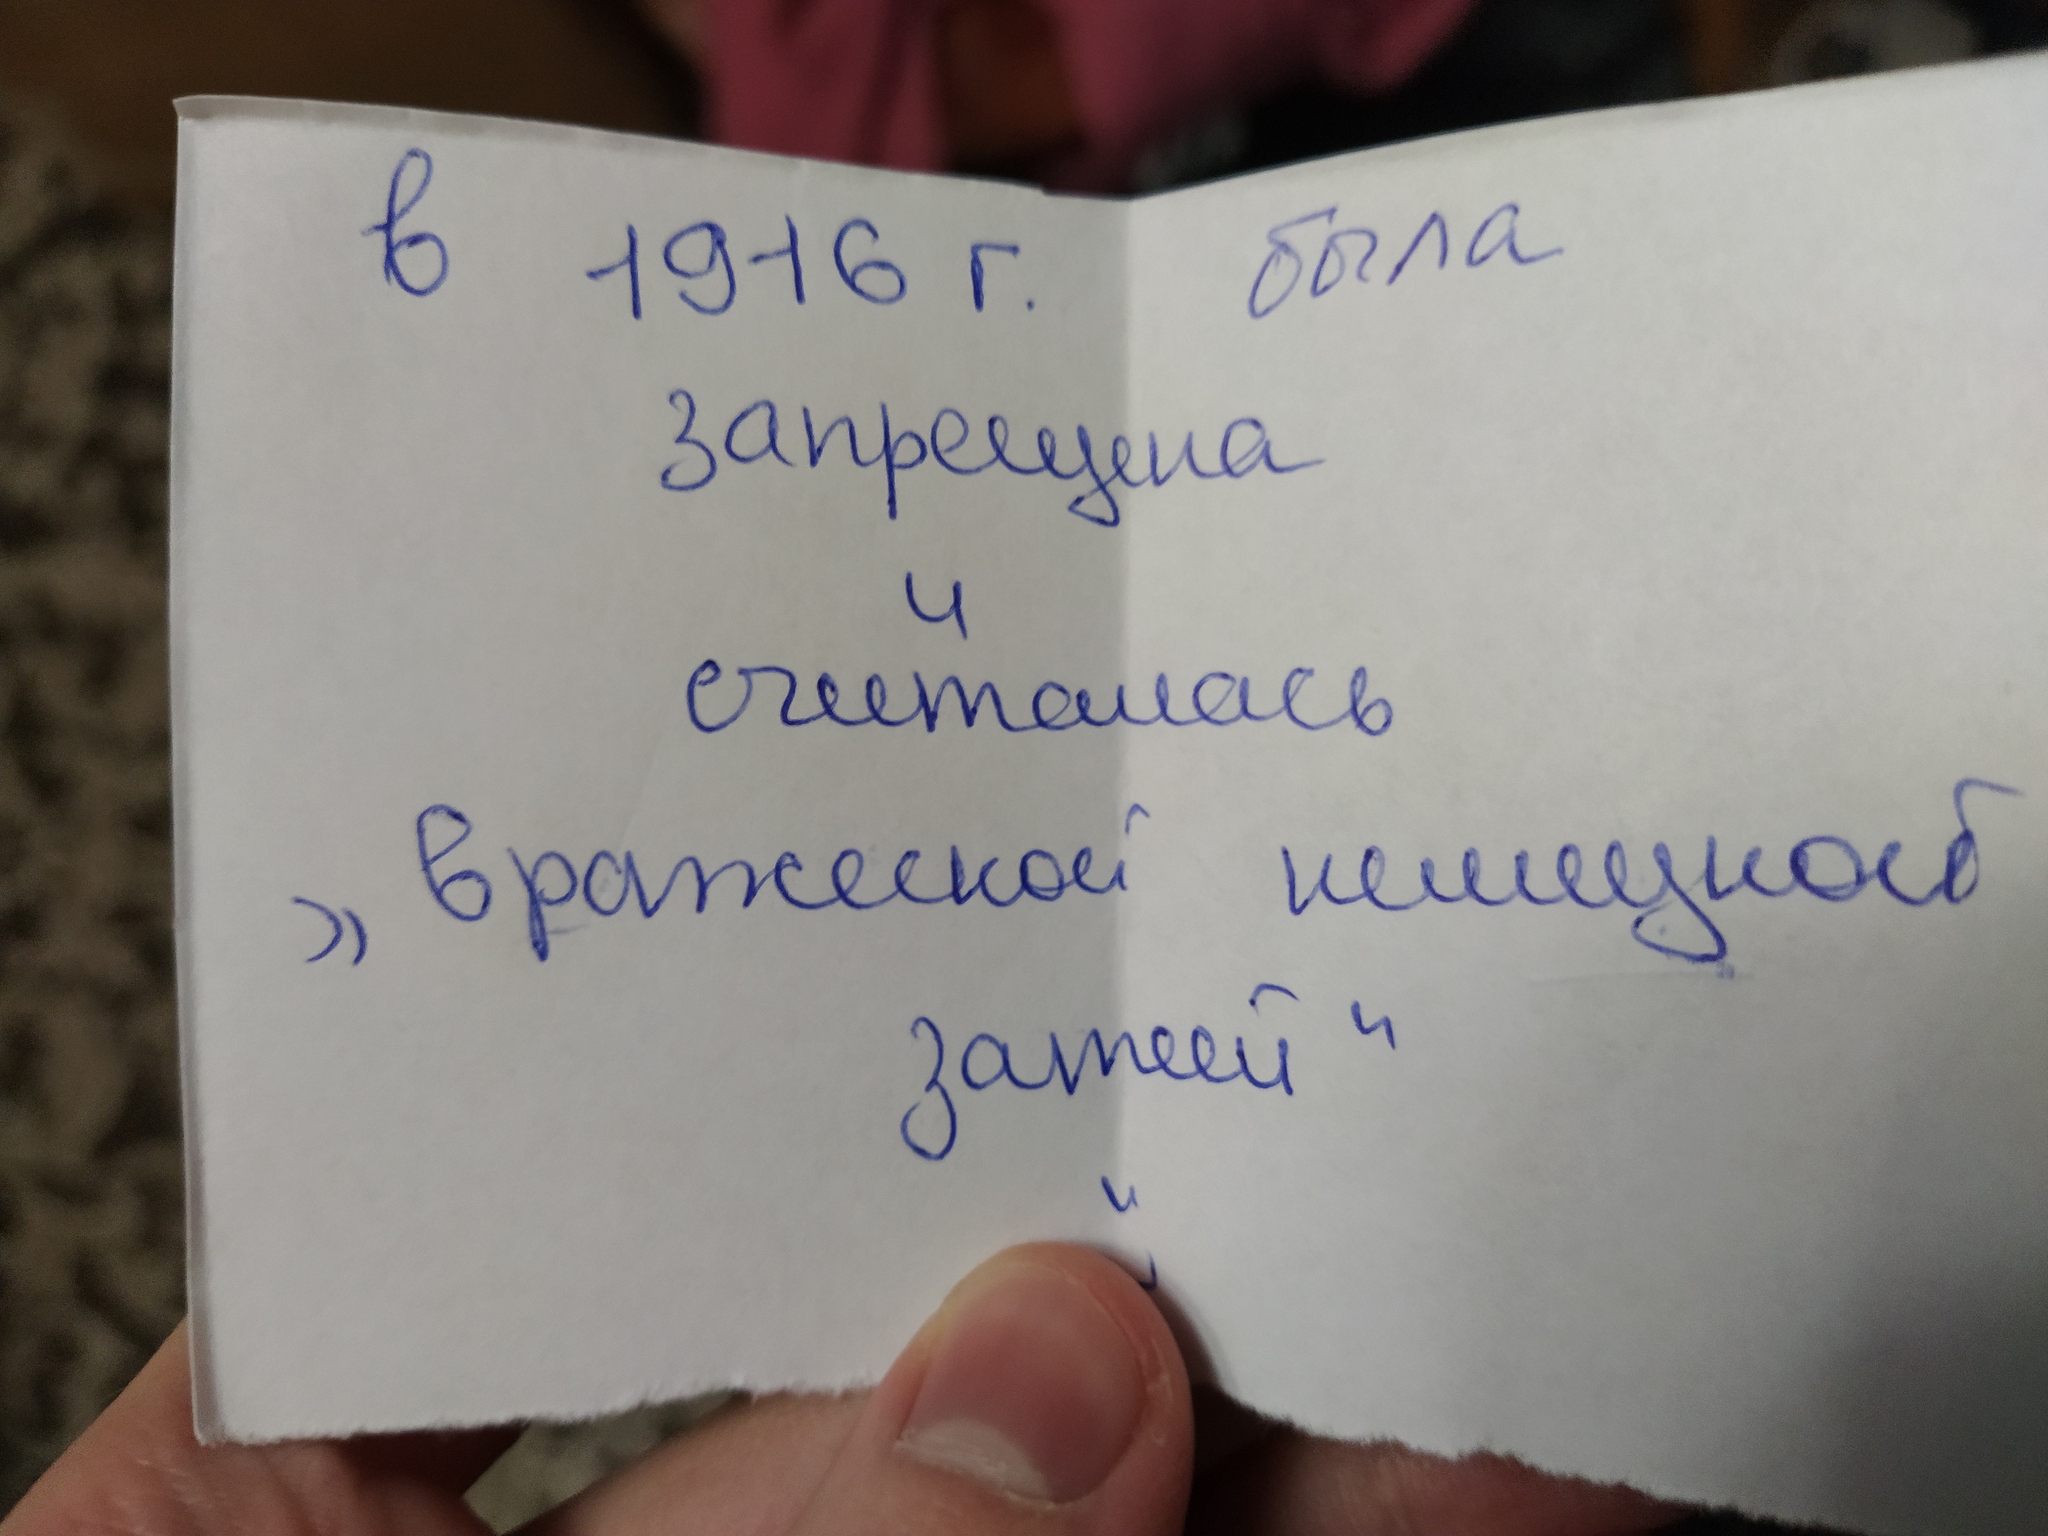 в 1916 г. была
запрещена
и
считалась
„вражеской немецкой
затеей“